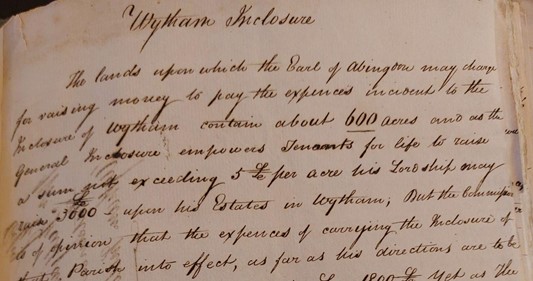 Wytham Inclosure
The lands upon which the Earl of Abingdon may charge
for raising money to pay the expences incident to the
Inclosure of Wytham contain about 600 acres and as the
General Inclosure empowers Tenants for life to raise
a sum not exceeding 5 £ per acre his Lordship may
raise 3000 £ upon his Estates in Wytham; But the
is of opinion that the expences of carrying the Inclosure of
that Parish into effect, as far as his directions are to be
1800 £ Yet as the